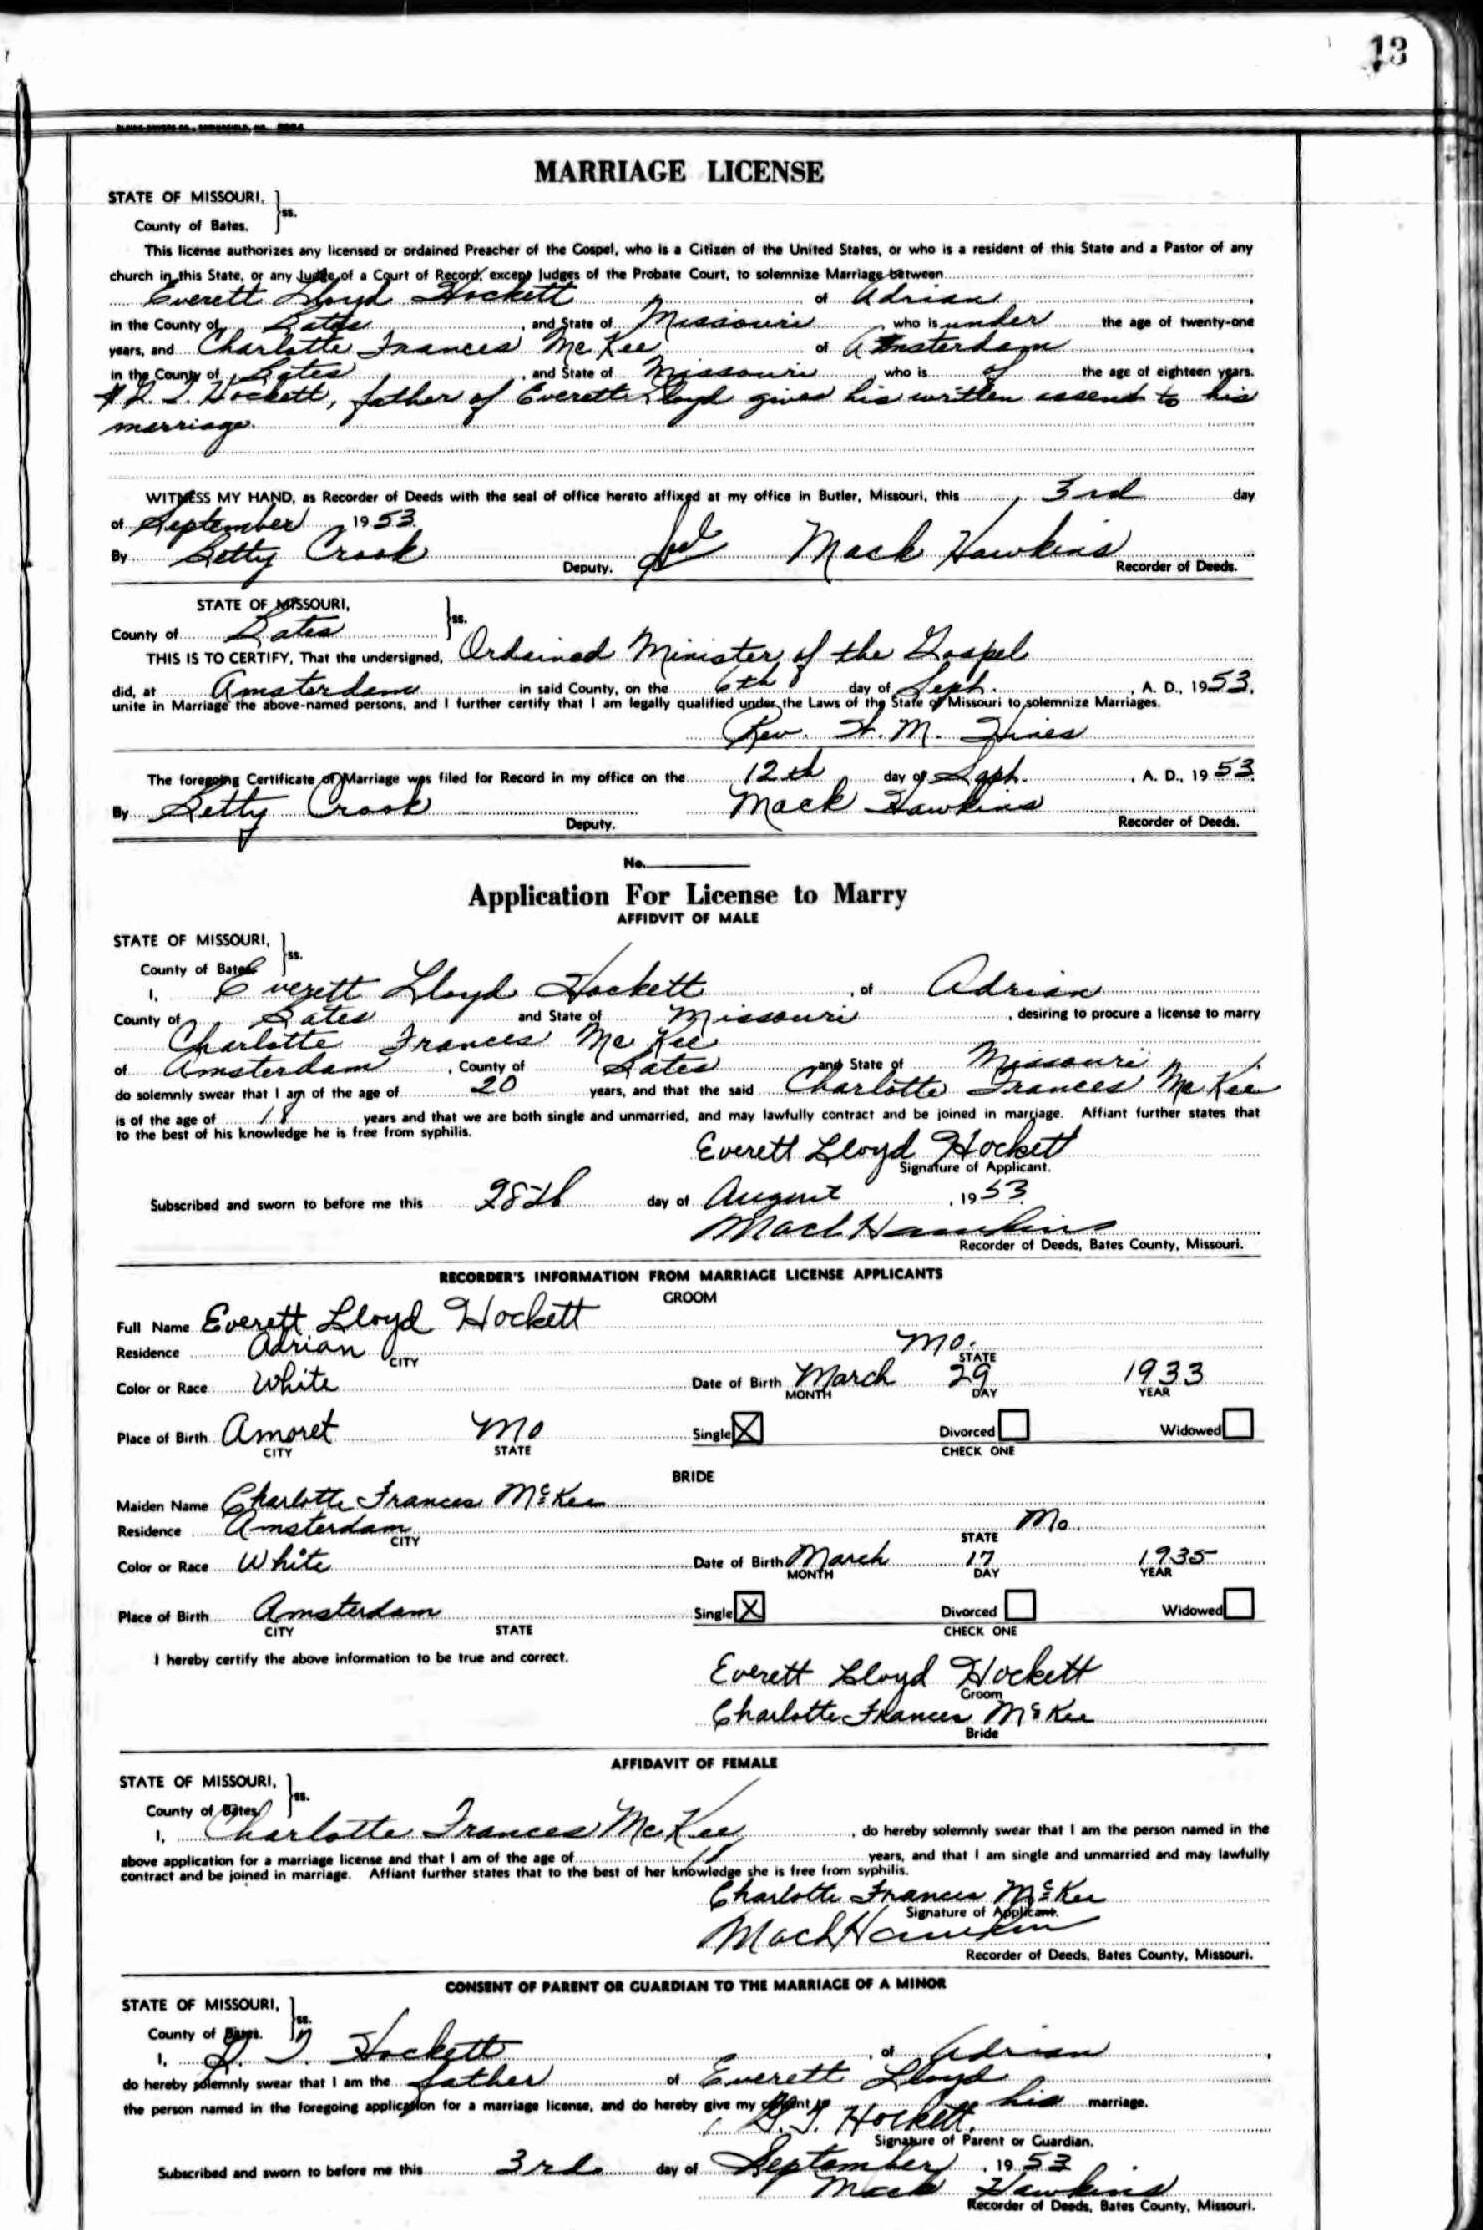 13
MARRIAGE LICENSE
STATE OF MISSOURI,
ss.
County of Bates.
This license authorizes any licensed or ordained Preacher of the Gospel, who is a Citizen of the United States, or who is a resident of this State and a Pastor of any
church in this State, or any Judge of a Court of Record, except Judges of the Probate Court, to solemnize Marriage between
Everett Lloyd Hockett of Adrian
in the County of Bates, and State of Missouri who is under the age of twenty-one
years, and Charlotte Frances McKee of Amsterdam
in the County of Bates, and State of Missouri, who is of the age of eighteen years.
Hockett, father of Everett Lloyd gives his written assent to his
marriage.
WITNESS MY HAND, as Recorder of Deeds with the seal of office hereto affixed at my office in Butler, Missouri, this 3rd day
of September 1953
By Betty Crook Deputy. Seal Mack Hawkins Recorder of Deeds.
STATE OF MISSOURI,
ss.
County of Bates
THIS IS TO CERTIFY, That the undersigned, Ordained Minister of the Gospel
did, at Amsterdam in said County, on the 6th day of Sept., A. D., 1953,
unite in Marriage the above-named persons, and I further certify that I am legally qualified under the Laws of the State of Missouri to solemnize Marriages.
Rev. H. M. Hines
The foregoing Certificate of Marriage was filed for Record in my office on the 12th day of Sept., A. D., 1953
By Betty Crook Deputy. Mack Hawkins Recorder of Deeds.
No.
Application For License to Marry
AFFIDVIT OF MALE
STATE OF MISSOURI,
ss.
County of Bates
I, Everett Lloyd Hockett, of Adrian
County of Bates and State of Missouri, desiring to procure a license to marry
Charlotte Frances McKee
of Amsterdam, County of Bates and State of Missouri
do solemnly swear that I am of the age of 20 years, and that the said Charlotte Frances McKee
is of the age of 18 years and that we are both single and unmarried, and may lawfully contract and be joined in marriage. Affiant further states that
to the best of his knowledge he is free from syphilis.
Everett Lloyd Hockett
Signature of Applicant.
Subscribed and sworn to before me this 28th day of August, 1953
Mack Hawkins
Recorder of Deeds, Bates County, Missouri.
RECORDER'S INFORMATION FROM MARRIAGE LICENSE APPLICANTS
GROOM
Full Name Everett Lloyd Hockett
Residence Adrian Mo.
CITY STATE
Color or Race White Date of Birth March 29 1933
MONTH DAY YEAR
Place of Birth Amoret Mo Single X Divorced Widowed
CITY STATE CHECK ONE
BRIDE
Maiden Name Charlotte Frances McKee
Residence Amsterdam Mo
CITY STATE
Color or Race White Date of Birth March 17 1935
MONTH DAY YEAR
Place of Birth Amsterdam Single X Divorced Widowed
CITY STATE CHECK ONE
I hereby certify the above information to be true and correct.
Everett Lloyd Hockett
Groom
Charlotte Frances McKee
Bride
AFFIDAVIT OF FEMALE
STATE OF MISSOURI,
ss.
County of Bates
I, Charlotte Frances McKee, do hereby solemnly swear that I am the person named in the
above application for a marriage license and that I am of the age of 18 years, and that I am single and unmarried and may lawfully
contract and be joined in marriage. Affiant further states that to the best of her knowledge she is free from syphilis.
Charlotte Frances McKee
Signature of Applicant.
Mack Hawkins
Recorder of Deeds, Bates County, Missouri.
CONSENT OF PARENT OR GUARDIAN TO THE MARRIAGE OF A MINOR
STATE OF MISSOURI,
ss.
County of Bates.
I, Hockett of Adrian
do hereby solemnly swear that I am the father of Everett Lloyd
the person named in the foregoing application for a marriage license, and do hereby give my consent to his marriage.
Hockett
Signature of Parent or Guardian.
Subscribed and sworn to before me this 3rd day of September, 1953
Mack Hawkins
Recorder of Deeds, Bates County, Missouri.